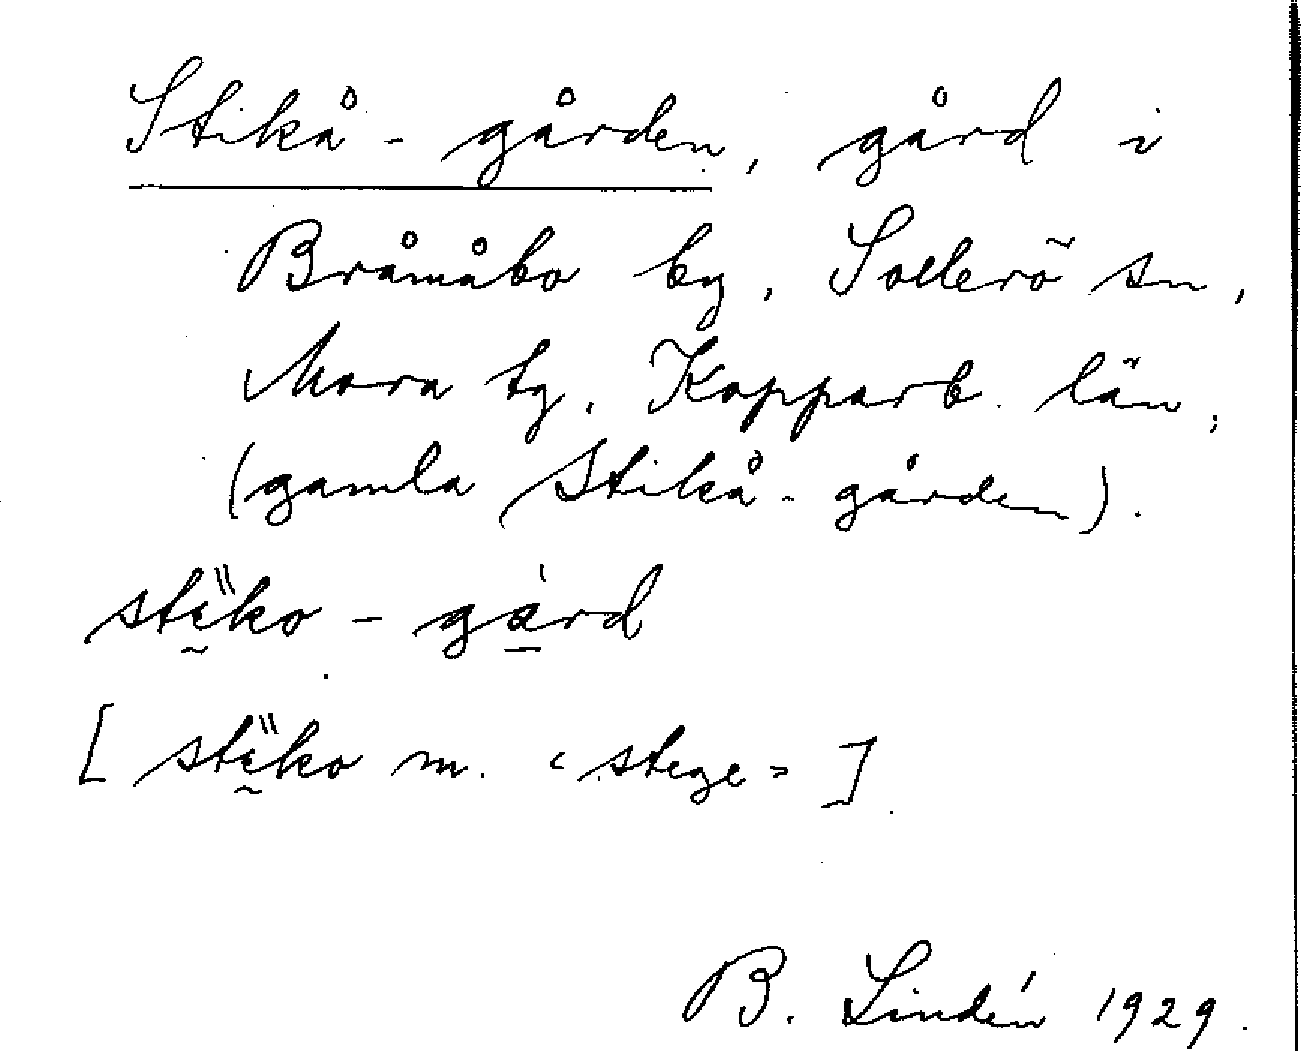 Stikå-gården, gård i
Bråmåbo by, Sollerö sn,
Mora tg, Kopparb. län,
(gamla Stikå-gården).
stḭ̀̀ko - gá̱rd
[stḭ̀̀ko m. ‹stege›].
B. Lindén 1929.